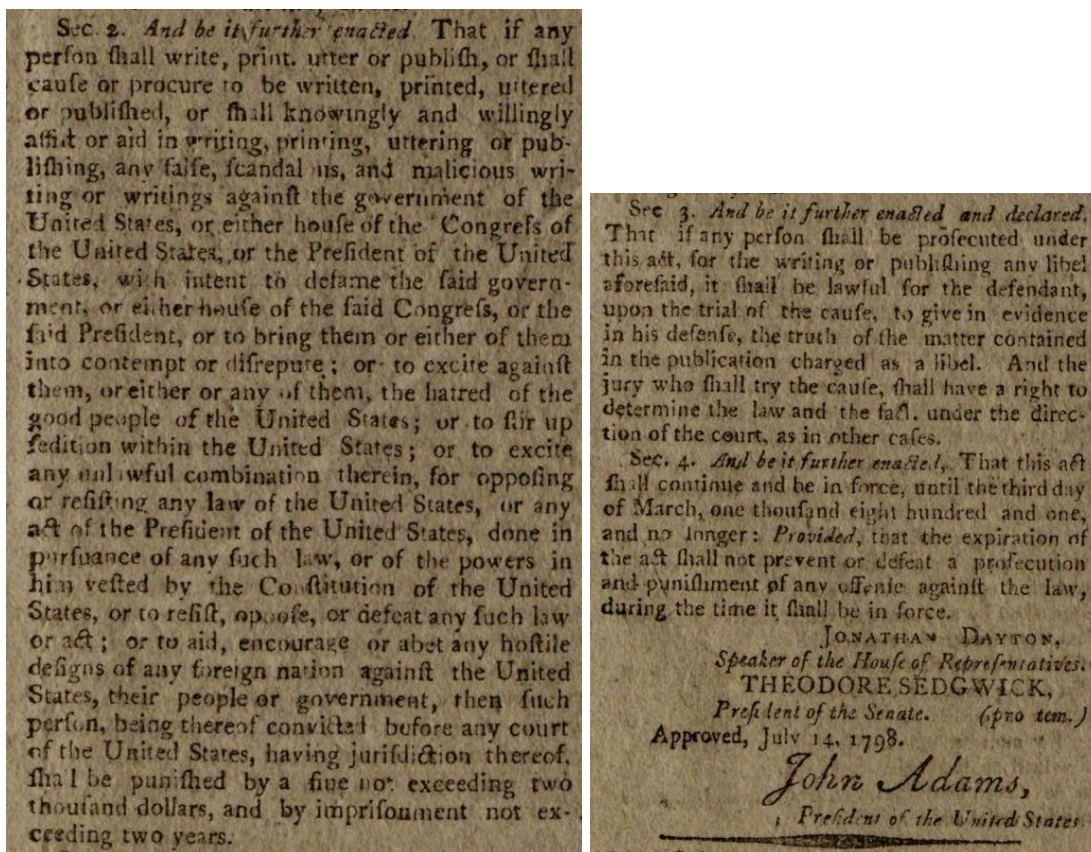 Sec. 2. And be it further enacted. That if any
perſon ſhall write, print. utter or publiſh, or ſhall
cauſe or procure to be written, printed, uttered
or publiſhed, or ſhall knowingly and willingly
aſſiſt or aid in writing, printing, uttering or pub-
liſhing, any falſe, ſcandalous, and malicious wri-
ting or writings againſt the government of the
United States, or either houſe of the Congreſs of
the United States, or the Preſident of the United
States, with intent to defame the ſaid govern-
ment, or either houſe of the ſaid Congreſs, or the
ſaid Preſident, or to bring them or either of them
into contempt or diſrepute; or to excite againſt
them, or either or any of them, the hatred of the
good people of the United States; or to ſtir up
ſedition within the United States; or to excite
any unlawful combination therein, for oppoſing
or reſiſting any law of the United States, or any
act of the Preſident of the United States, done in
purſuance of any ſuch law, or of the powers in
him veſted by the Conſtitution of the United
States, or to reſiſt, oppoſe, or defeat any ſuch law
or act; or to aid, encourage or abet any hoſtile
deſigns of any foreign nation againſt the United
States, their people or government, then ſuch
perſon, being thereof convicted before any court
of the United States, having juriſdiction thereof,
ſhall be puniſhed by a fine not exceeding two
thouſand dollars, and by impriſonment not ex-
ceeding two years.
Sec 3. And be it further enacted and declared,
That if any perſon ſhall be proſecuted under
this act, for the writing or publiſhing any libel
aforeſaid, it ſhall be lawful for the defendant,
upon the trial of the cauſe, to give in evidence
in his defenſe, the truth of the matter contained
in the publication charged as a libel. And the
jury who ſhall try the cauſe, ſhall have a right to
determine the law and the fact, under the direc-
tion of the court, as in other caſes.
Sec. 4. And be it further enacted, That this act
ſhall continue and be in force, until the third day
of March, one thouſand eight hundred and one,
and no longer: Provided, that the expiration of
the act ſhall not prevent or defeat a proſecution
and puniſhment of any offenſe againſt the law,
during the time it ſhall be in force.
JONATHAN DAYTON,
Speaker of the Houſe of Repreſentatives.
THEODORE SEDGWICK,
Preſident of the Senate. (pro tem.)
Approved, July 14, 1798.
John Adams,
Preſident of the United States.